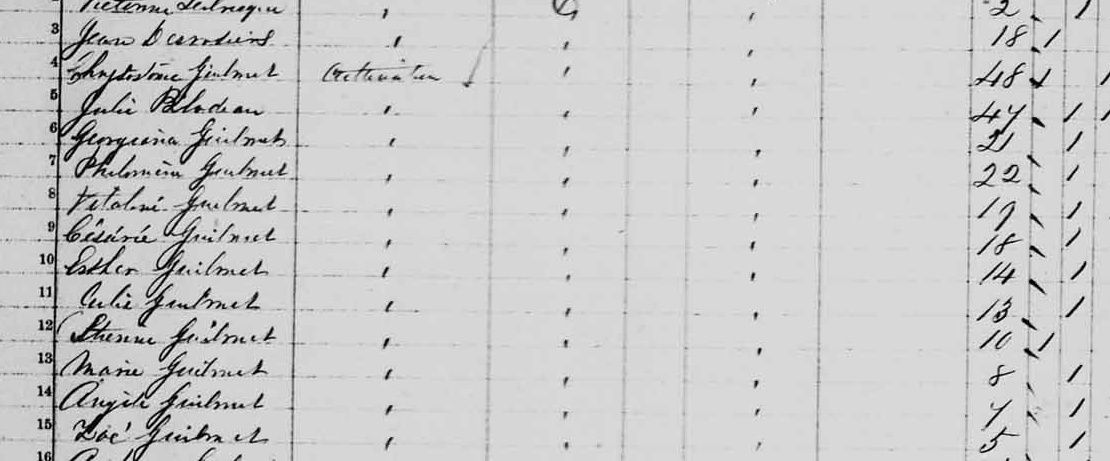 2 1
3 Jean Desrosiers " " " 18 1
4 Chrysostome Guilmet Cultivateur " " 48 1 1
5 Julie Bilodeau " " " 47 1 1
6 Georgiana Guilmet " " " 21 1
7 Philomène Guilmet " " " 22 1
8 Vitaliné Guilmet " " " 19 1
9 Césarée Guilmet " " " 18 1
10 Esther Guilmet " " " 14 1
11 Julie Guilmet " " " 13 1
12 Etienne Guilmet " " " 10 1
13 Marie Guilmet " " " 8 1
14 Angèle Guilmet " " " 7 1
15 Zoé Guilmet " " " 5 1
16